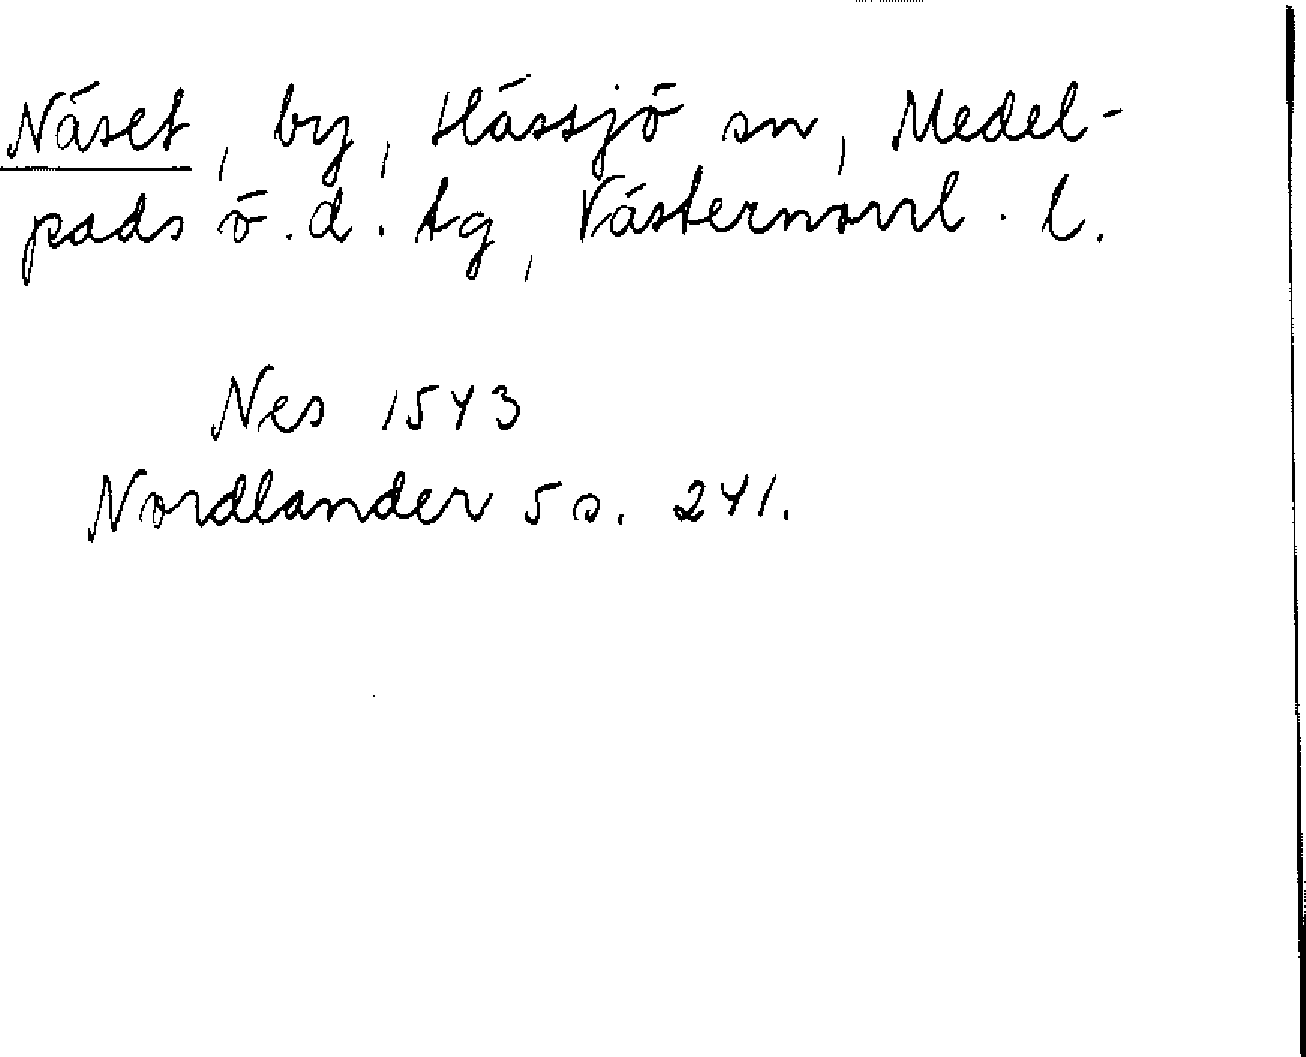 Näset, by, Hässjö sn, Medel-
pads ö.d. tg, Västernorrl. l.
Nes 1543
Nordlander 5 s. 241.